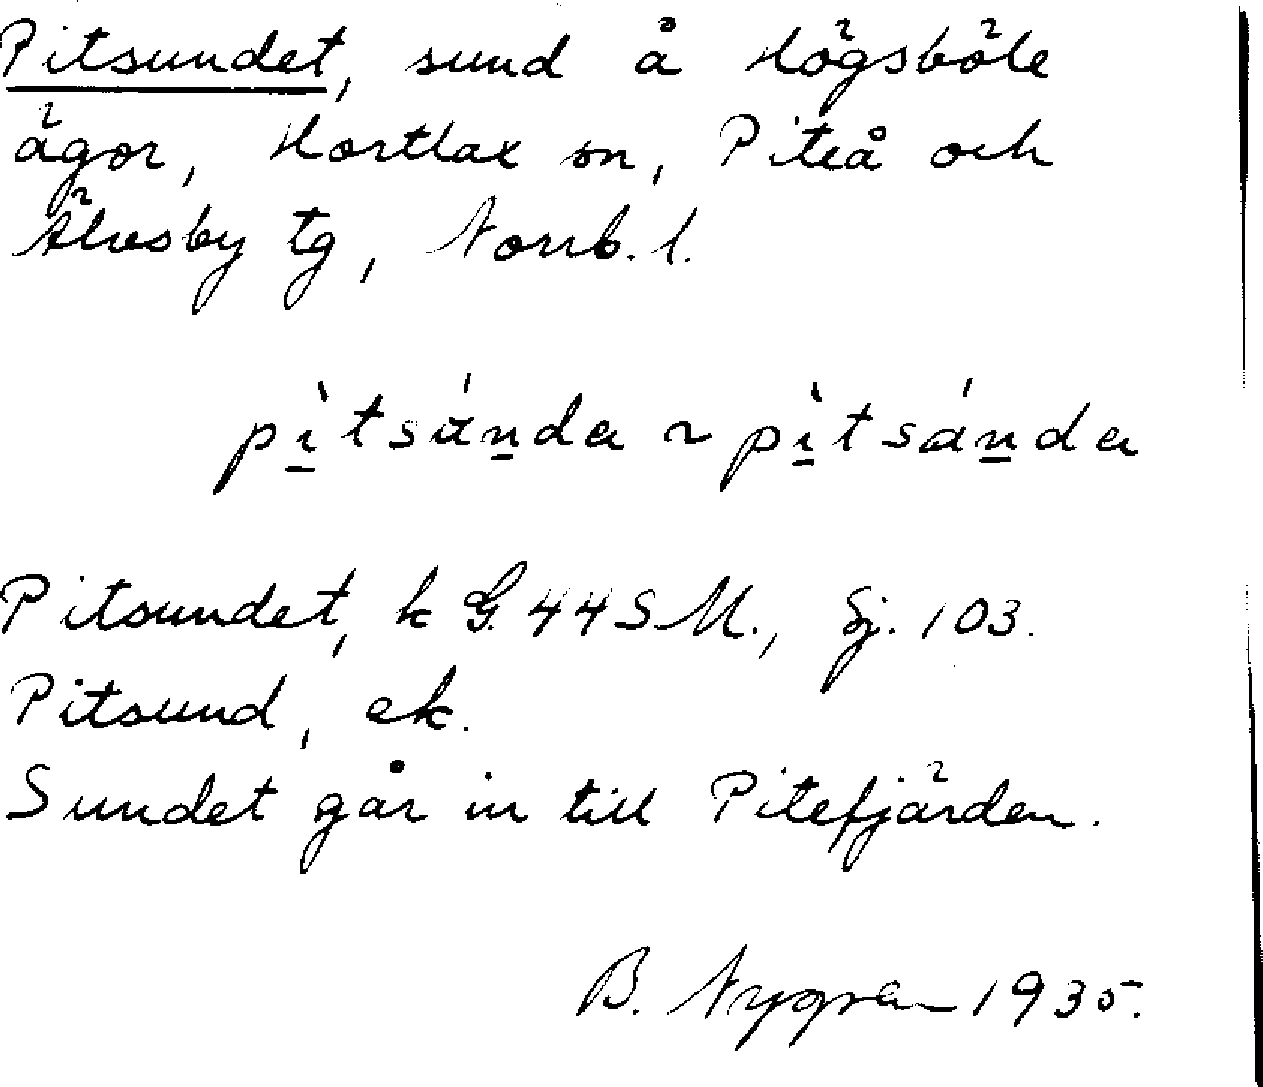 Pitsundet, sund å Högsböle
ägor, Hortlax sn, Piteå och
Älvsby tg, Norrb. l.
Pitsundet, k G. 44 S M., Sj. 103.
Pitsund, ek.
Sundet går in till Pitefjärden.
B. Nygren 1935.